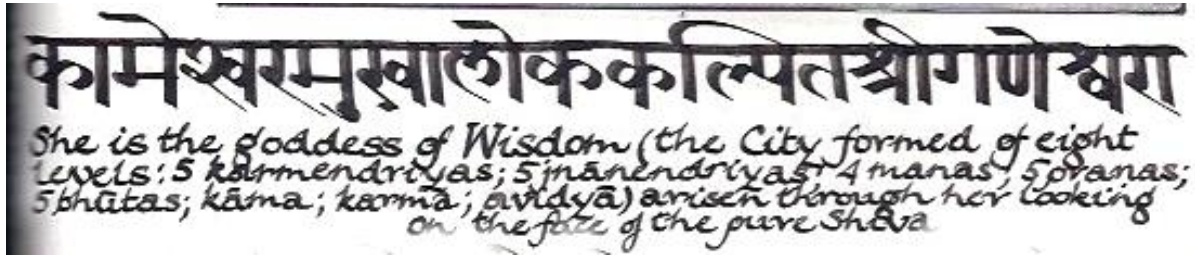 कामेश्वरमुखालोककल्पितश्रीगणेश्वरा
She is the goddess of Wisdom (the City formed of eight
levels: 5 karmendriyas; 5 jnānendriyas; 4 manas; 5 pranas;
5 bhūtas; kāma; karma; avidyā) arisen through her looking
on the face of the pure Shiva